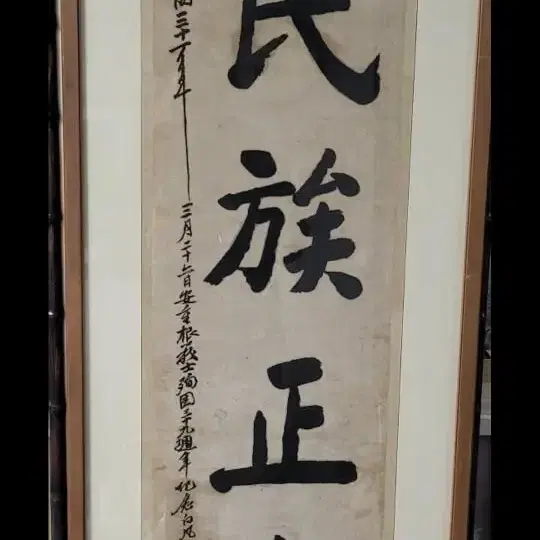 民族正
國三十一年三月二十六日安重根義士殉國三十九週年紀念白凡